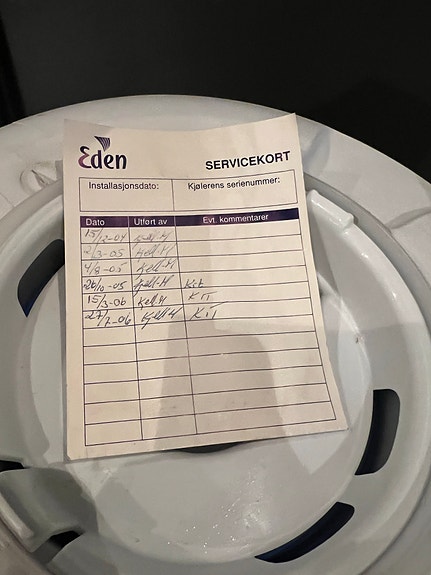 Eden
SERVICEKORT
Installasjonsdato: Kjølerens serienummer:
Dato Utført av Evt. kommentarer
15/12-04 Kjell-H
2/3-05 Kjell-H
4/8-05 Kjell-H
26/10-05 Kjell-H Kit
15/3-06 Kjell-H KIT
27/7-06 Kjell H KIT